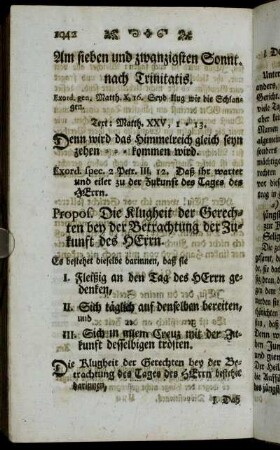 1042
Am sieben und zwanzigsten Sonnt.
nach Trinitatis.
Exord. gen. Matth. X, 16. Seyd klug wie die Schlan-
gen.
Text: Matth. XXV, 1 = 13.
Denn wird das Himmelreich gleich seyn
zehen = = = kommen wird.
Exord. spec. 2 Petr. III. 12. Daß ihr wartet
und eilet zu der Zukunft des Tages des
HErrn.
Propos. Die Klugheit der Gerech-
ten bey der Betrachtung der Zu-
kunft des HErrn.
Es bestehet dieselbe darinnen, daß sie
I. Fleißig an den Tag des HErrn ge-
denken,
II. Sich täglich auf denselben bereiten,
und
III. Sich in allem Creuz mit der Zu-
kunft desselbigen trösten.
Die Klugheit der Gerechten bey der Be-
trachtung des Tages des HErrn bestehet
darinnen,
I. Daß